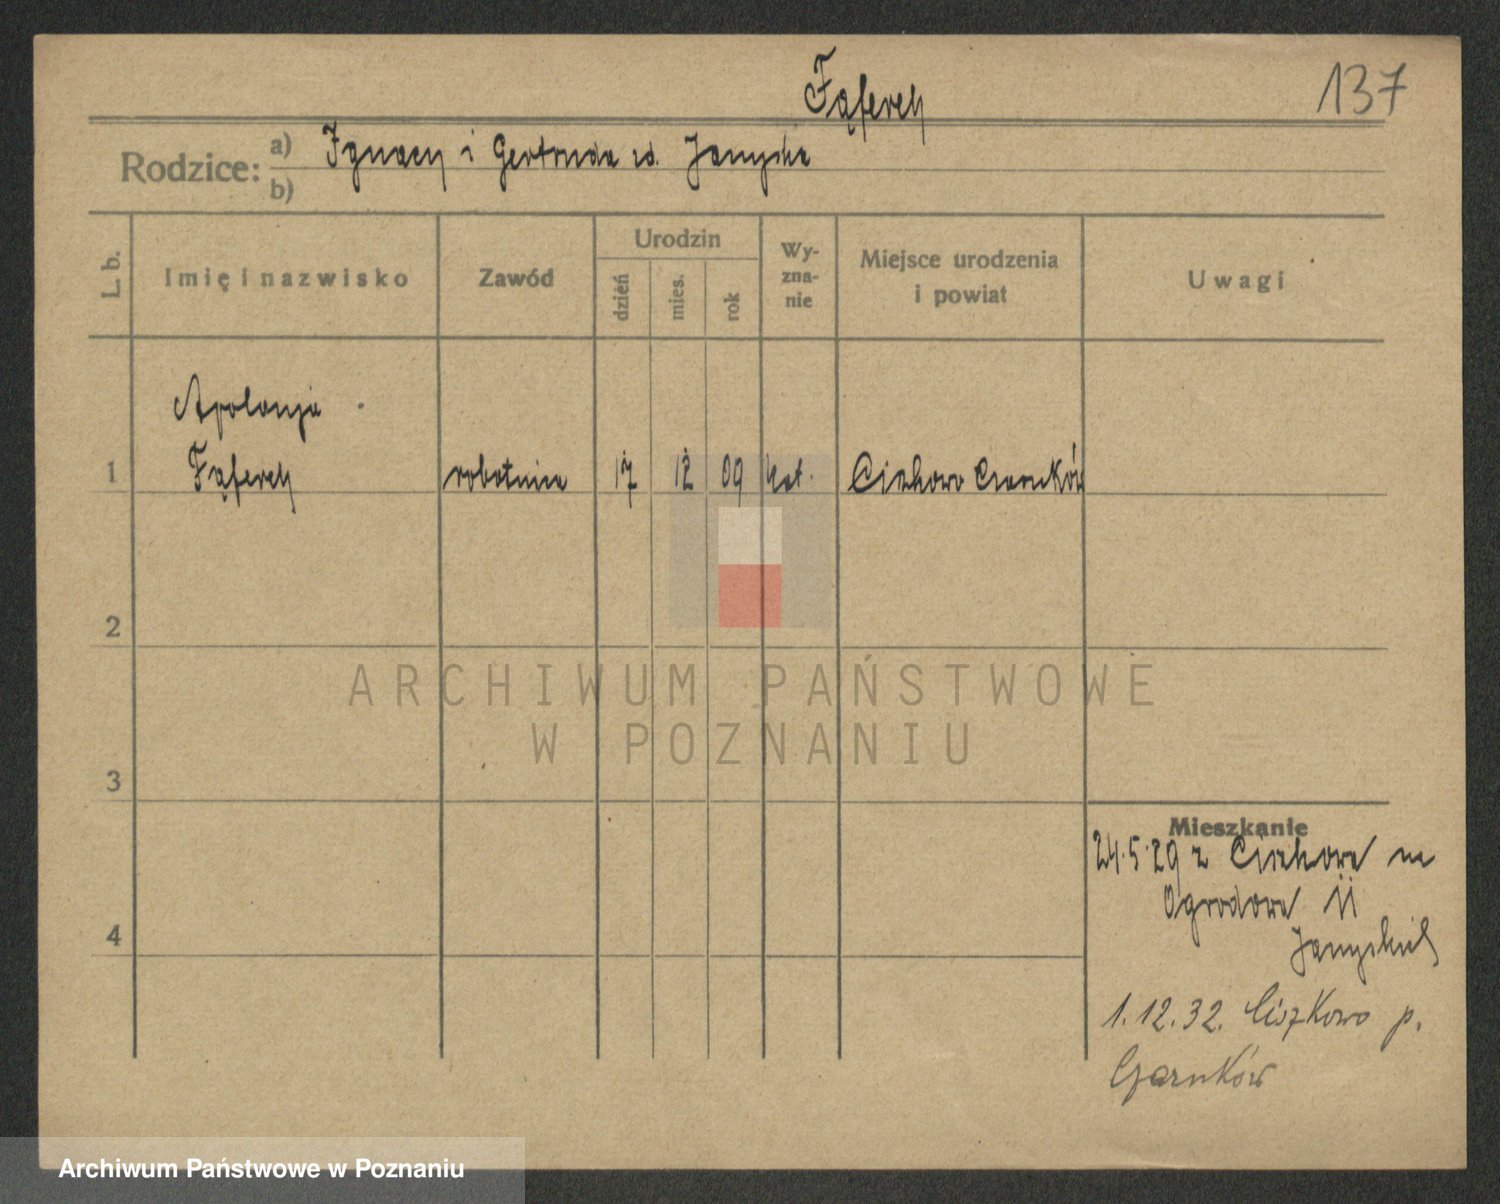 Fąferek
137
Rodzice: a) Ignacy i Gertruda zd.
b)
L. b.
Imię i nazwisko
Zawód
Urodzin
dzień
mies.
rok
Wy-
zna-
nie
Miejsce urodzenia
i powiat
Uwagi
Apolonja
1 Fąferek robotnica 17 12 09 kat. Ciszkowo Czarnków
2
3
4
ARCHIWUM PAŃSTWOWE
W POZNANIU
Mieszkanie
24.5.29 z Ciszkowa na
Ogrodowa 11
1.12.32. Ciszkowo p.
Czarnków
Archiwum Państwowe w Poznaniu